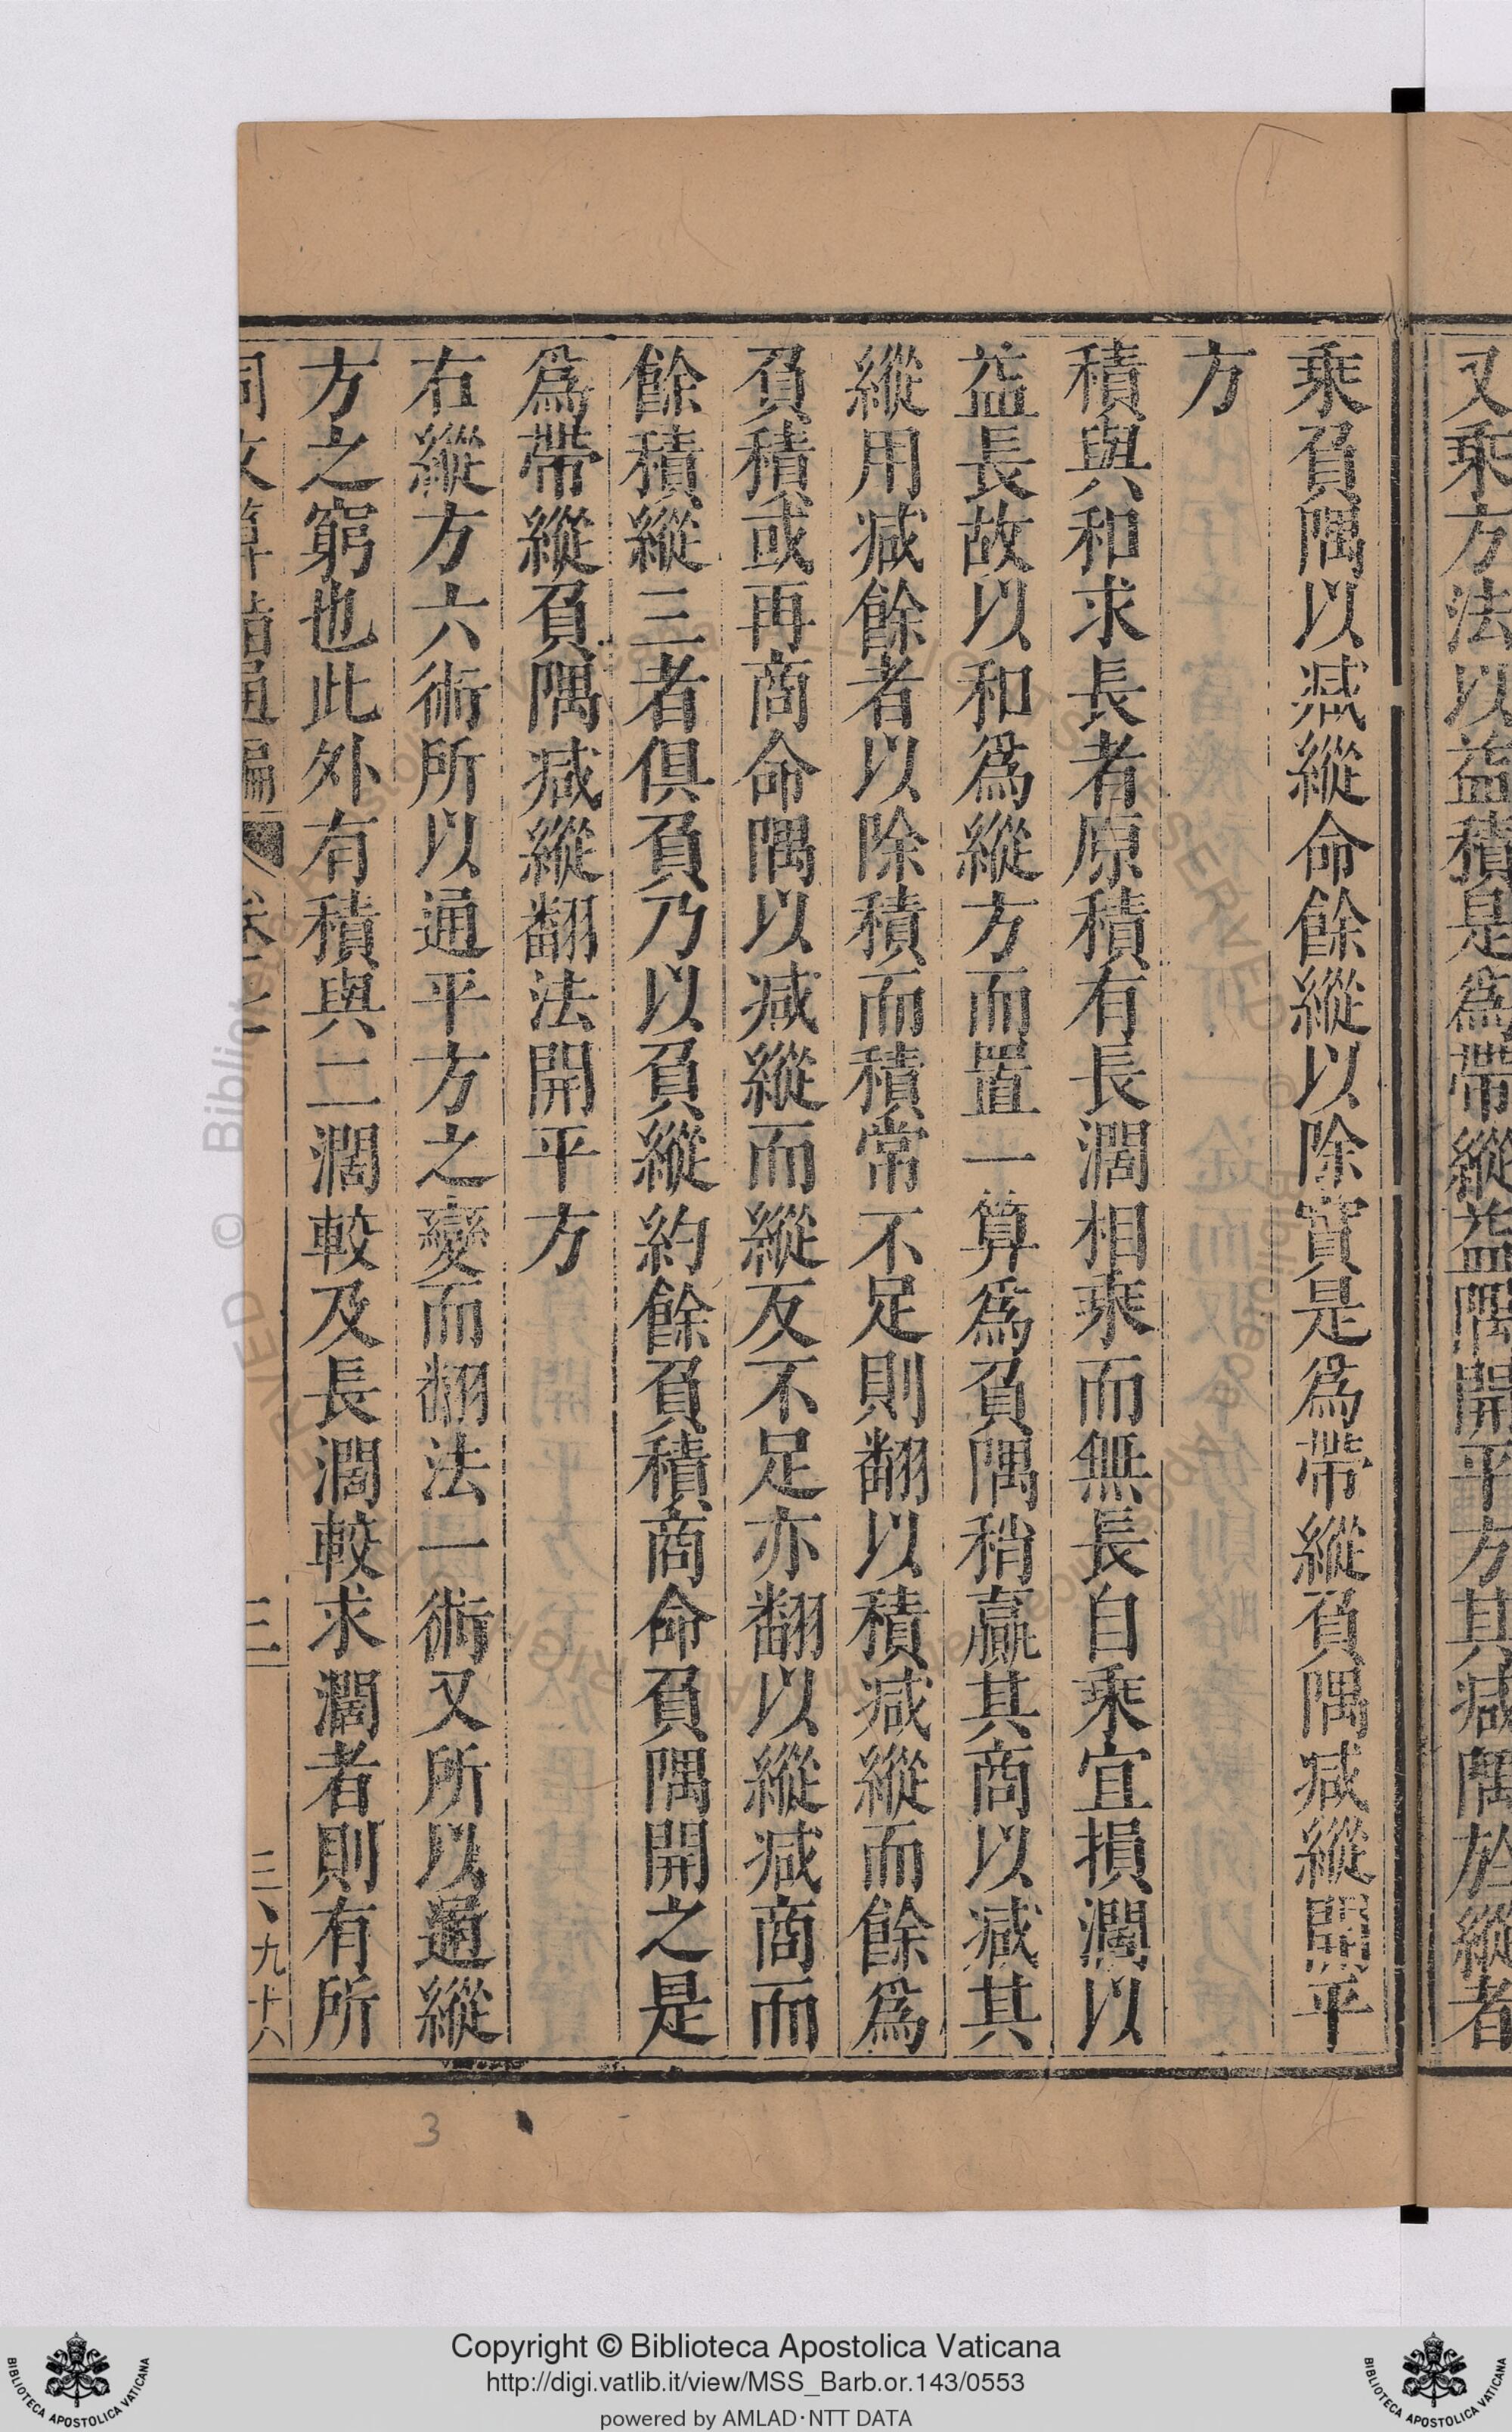 又乘方法以益積是為帶縱益隅開平方其減隅於縱者
乘負隅以減縱命餘縱以除實是為帶縱負隅減縱開平
方
積與和求長者原積有長濶相乘而無長自乘宜損濶以
益長故以和為縱方而置一算為負隅稍贏其商以減其
縱用減餘者以除積而積常不足則翻以積減縱而餘為
負積或再商命隅以減縱而縱反不足亦翻以縱減商而
餘積縱三者俱負乃以負縱約餘負積商命負隅開之是
為帶縱負隅減縱翻法開平方
右縱方六術所以通平方之變而翻法一術又所以通縱
方之窮也此外有積與二濶較及長濶較求濶者則有所
同文算指通編
三
三、九十八
3
Copyright © Biblioteca Apostolica Vaticana
http://digi.vatlib.it/view/MSS_Barb.or.143/0553
powered by AMLAD·NTT DATA
BIBLIOTECA APOSTOLICA VATICANA
BIBLIOTECA APOSTOLICA VATICANA